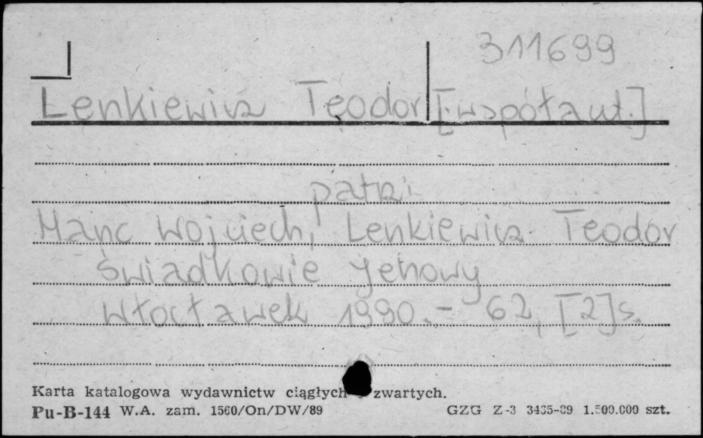 311699
Lenkiewicz Teodor [współaut.]
patrz:
Hanc Wojciech, Lenkiewicz Teodor
Świadkowie Jehowy
Włocławek 1990.- 62, [2]s.
Karta katalogowa wydawnictw ciągłych zwartych.
Pu-B-144 W.A. zam. 1560/On/DW/89 GZG Z-3 3435-89 1.500.000 szt.